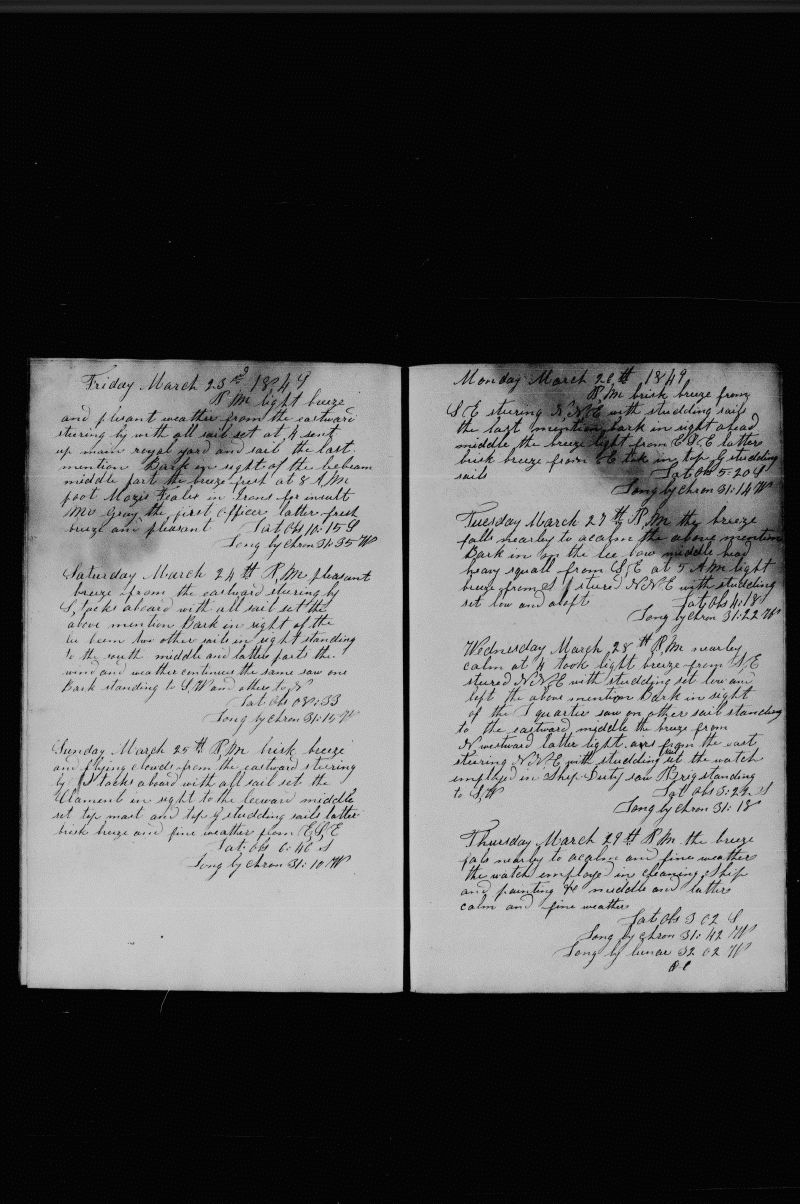 Friday March 23rd 1849
P,M light breeze
and plesant weather from the eastward
steering by with all sail set at 4 sent
up main royal yard and sail the last
mention Bark in sight of the lebeam
middle part the breeze fresh at 8 A M
foot Mozis in Irons for insult
Mr Gray the first Officer latter fresh
breeze and plesant Lat Obs 10:15 S
Long by Chron 31:35 W
Saturday March 24th P,M plesant
breeze from the eastward steering by
S, tacks aboard with all sail set the
above mention Bark in sight of the
lee beem two other sails in sight standing
to the south middle and latter parts the
wind and weather continues the same saw one
Bark standing to S,W and other to N
Lat Obs 08:33
Long by Chron 31:15 W
Sunday March 25th P,M brisk breeze
and flying clouds from the eastward steering
by S tacks aboard with all sail set the
in sight to the leeward middle
set top mast and top G studding sails latter
brisk breeze and fine weather from E,S,E
Lat Obs 6:46 S
Long by Chron 31:10 W
Monday March 26th 1849
P,M brisk breeze from
S E steering N,N,E with studding sails
the last mention bark in sight ahead
middle the breeze light from E S,E latter
brisk breeze from EE tok in top G studding
sails Lat Obs 5:20 S
Long by Chron 31:14 W
Tuesday March 27th P,M the breeze
falls nearby to acalm the above mention
Bark in on the lee bow middle had
heavy squall from S,E at 5 A M light
breeze from S stured N N E with studding
set low and aloft Lat Obs 4:18 S
Long by Chron 31:22 W
Wednesday March 28th P,M nearby
calm at 4 took light breeze from S,E
stured N N,E with studding set low and
left the above mention Bark in sight
of the quarter saw on other sail standing
to the eastward middle the breze from
N westward latter light airs from the east
steering N N,E with studding sails set the watch
employed in Ship Duty saw Brig standing
to S,W Lat Obs 3:29 S
Long by Chron 31:18
Thursday March 29th P,M the breeze
fals nearby to acalm and fine weather
the watch employd in cleaning Ship
and painting &c middle and latter
calm and fine weather
Lat Obs 3 02 S
Long by Chron 31:42 W
Long by lunar 32 02 W